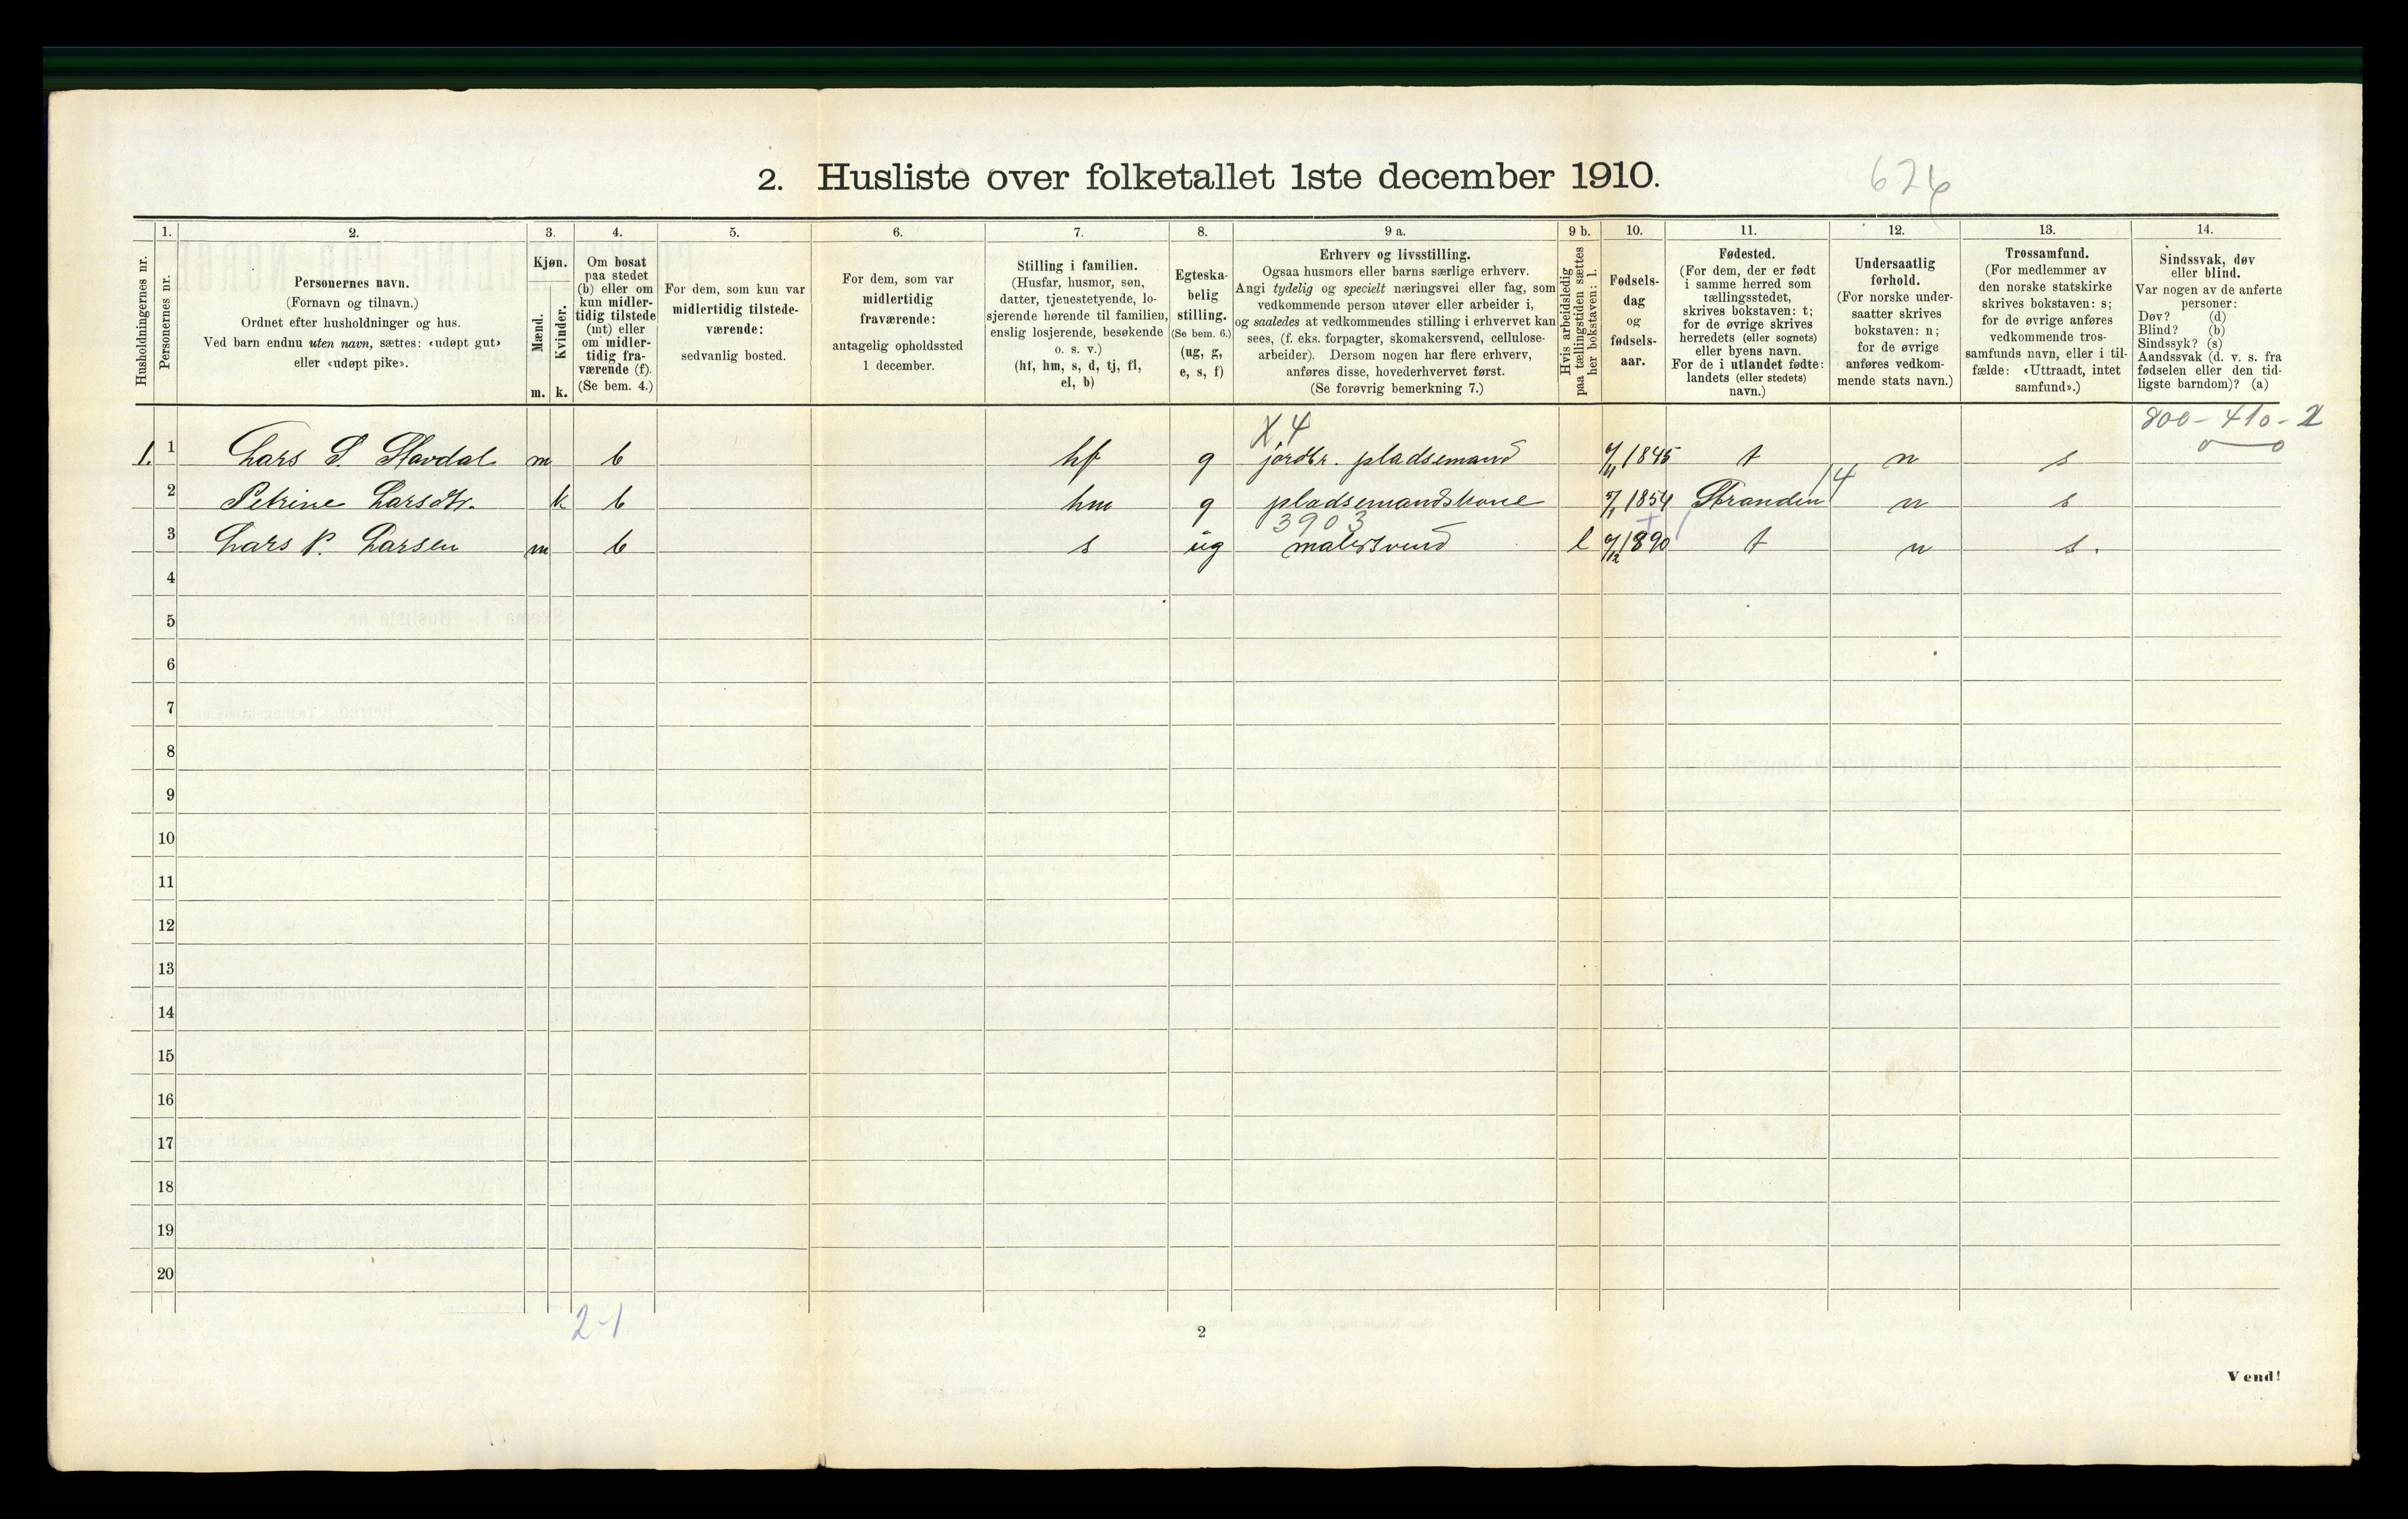 2. Husliste over folketallet 1ste december 1910.
626
Husholdningernes nr.
1.
Personernes nr.
2.
Personernes navn.
(Fornavn og tilnavn.)
Ordnet efter husholdninger og hus.
Ved barn endnu uten navn, sættes: «udøpt gut»
eller «udøpt pike».
3.
Kjøn.
Mænd.
Kvinder.
m. k.
4.
Om bosat
paa stedet
(b) eller om
kun midler-
tidig tilstede
(mt) eller
om midler-
tidig fra-
værende (f).
(Se bem. 4.)
5.
For dem, som kun var
midlertidig tilstede-
værende:
sedvanlig bosted.
6.
For dem, som var
midlertidig
fraværende:
antagelig opholdssted
1 december.
7.
Stilling i familien.
(Husfar, husmor, søn,
datter, tjenestetyende, lo-
sjerende hørende til familien,
enslig losjerende, besøkende
o. s. v.)
(hf, hm, s, d, tj, fl,
el, b)
8.
Egteska-
belig
stilling.
(Se bem. 6.)
(ug, g,
e, s, f)
9 a.
Erhverv og livsstilling.
Ogsaa husmors eller barns særlige erhverv.
Angi tydelig og specielt næringsvei eller fag, som
vedkommende person utøver eller arbeider i,
og saaledes at vedkommendes stilling i erhvervet kan
sees, (f. eks. forpagter, skomakersvend, cellulose-
arbeider). Dersom nogen har flere erhverv,
anføres disse, hovederhvervet først.
(Se forøvrig bemerkning 7.)
9 b.
Hvis arbeidsledig
paa tællingstiden sættes
her bokstaven: l.
10.
Fødsels-
dag
og
fødsels-
aar.
11.
Fødested.
(For dem, der er født
i samme herred som
tællingsstedet,
skrives bokstaven: t;
for de øvrige skrives
herredets (eller sognets)
eller byens navn.
For de i utlandet fødte:
landets (eller stedets)
navn.)
12.
Undersaatlig
forhold.
(For norske under-
saatter skrives
bokstaven: n;
for de øvrige
anføres vedkom-
mende stats navn.)
13.
Trossamfund.
(For medlemmer av
den norske statskirke
skrives bokstaven: s;
for de øvrige anføres
vedkommende tros-
samfunds navn, eller i til-
fælde: «Uttraadt, intet
samfund».)
14.
Sindssvak, døv
eller blind.
Var nogen av de anførte
personer:
Døv? (d)
Blind? (b)
Sindssyk? (s)
Aandssvak (d. v. s. fra
fødselen eller den tid-
ligste barndom)? (a)
X 4 800-410-2
0 0
1. 1 Lars S. Slavdal m b hf g jordbr. pladsemand 9/11 1845 t n s
2 Petrine Larsdtr. k b hm g pladsemandskone 5/1 1854 Stranden 14 n s
3903
3 Lars P. Larsen m b s ug malersvend l 9/12 1890 t n s.
4
5
6
7
8
9
10
11
12
13
14
15
16
17
18
19
20
2-1
2
Vend!